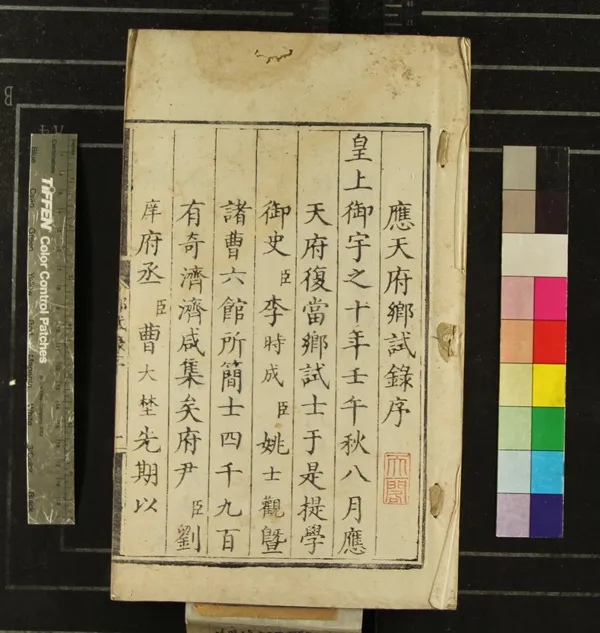 應天府鄉試錄序
皇上御宇之十年壬午秋八月應
天府復當鄉試士于是提學
御史臣李時成臣姚士觀曁
諸曹六館所簡士四千九百
有奇濟濟咸集矣府尹臣劉
庠府丞臣曹大埜先期以
TIFFEN Color Control Patches